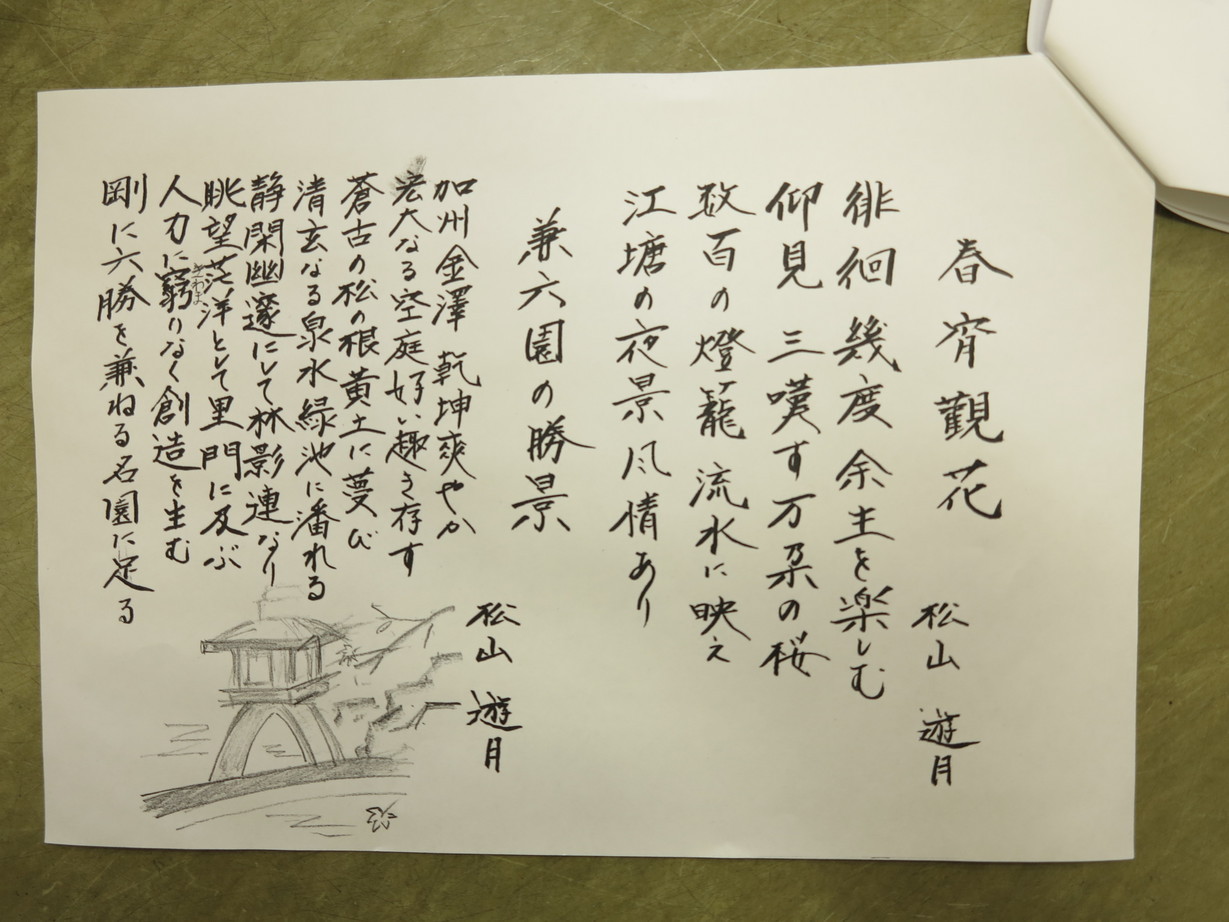 春宵観花
松山 遊月
徘徊幾度余生を楽しむ
仰見三嘆す万朶の桜
数百の燈籠流水に映え
江塘の夜景風情あり
兼六園の勝景
松山 遊月
加州金澤 乾坤爽やか
宏大なる空庭好い趣き存す
蒼古の松の根黄土に蔓び
清玄なる泉水緑池に潘れる
静閑幽邃にして林影連なり
眺望茫洋として里門に及ぶ
人力に窮りなく創造を生む
きわま
剛に六勝を兼ねる名園に足る